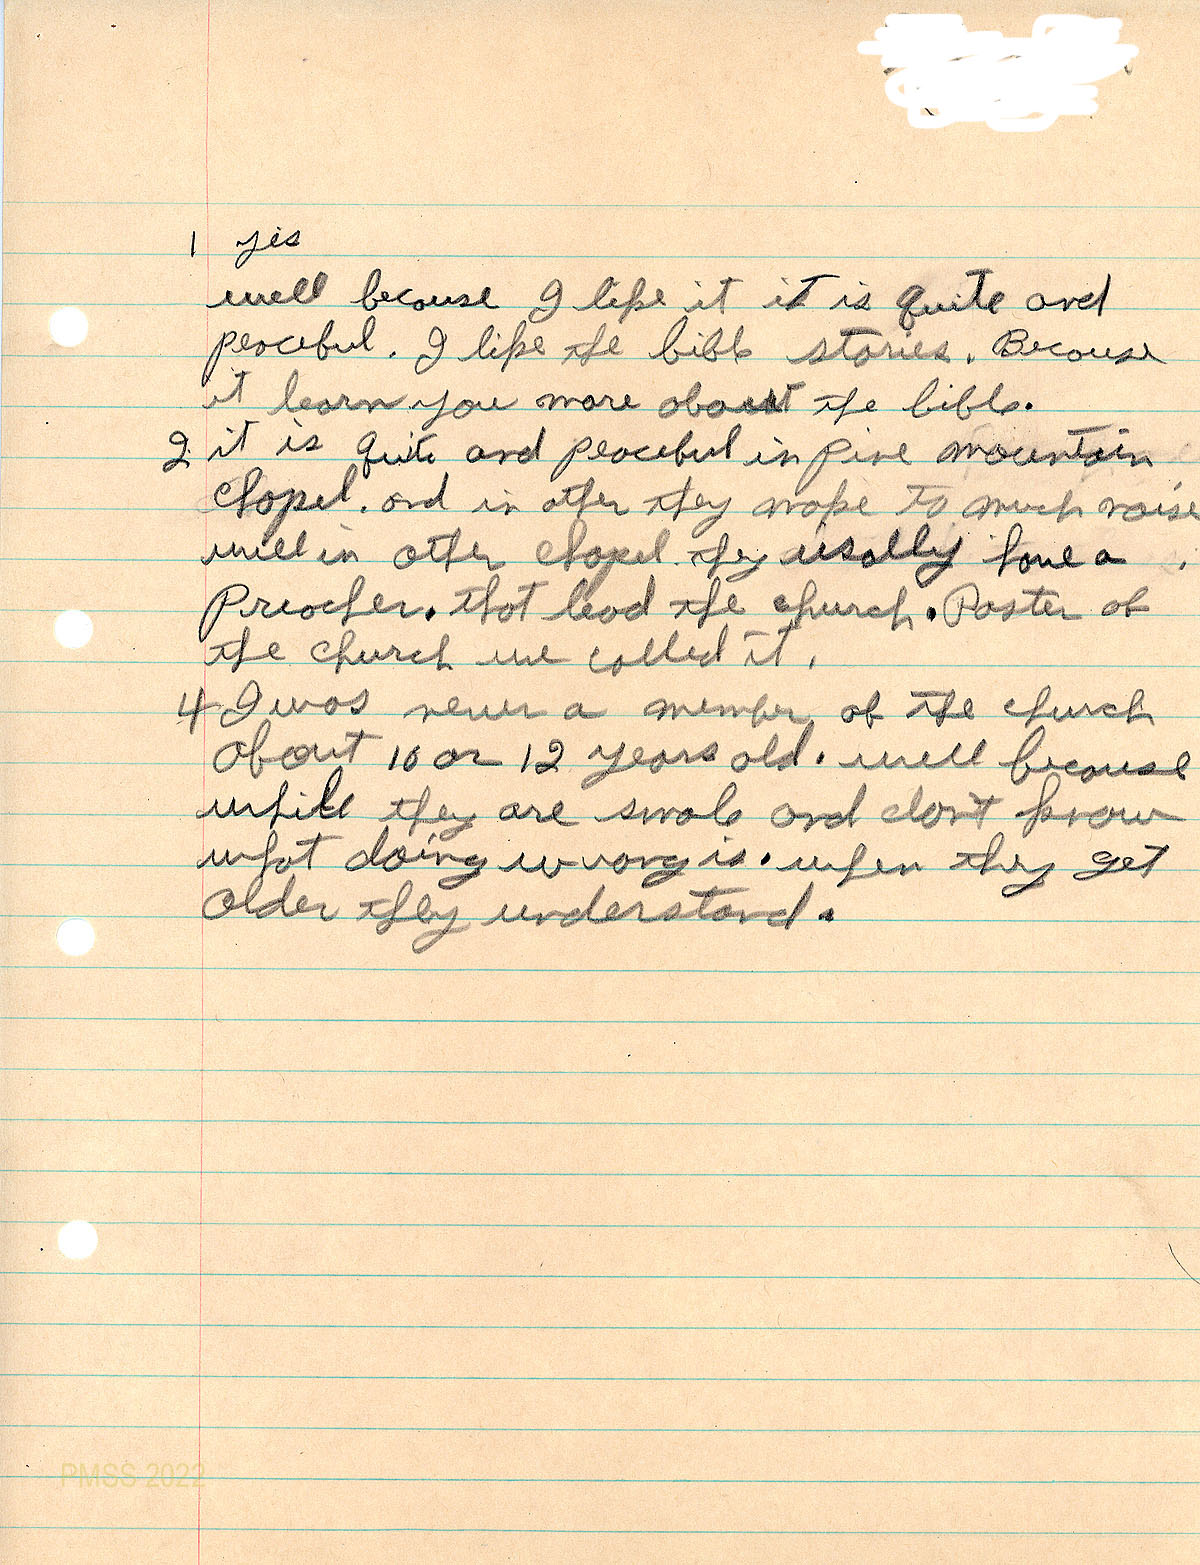 1 yes
well because I like it it is quite and
peaceful. I like the bible stories. Because
it learn you more about the bible.
2. it is quite and peaceful in pine mountain
Chapel. and in other they make to much noise
well in other Chapel. they usally have a
Preacher. that lead the church. Paster of
the church we called it.
4 I was never a member of the church
About 10 or 12 years old. well because
while they are smale and don't know
what doing wrong is. when they get
Older they understand.
PMSS 2022